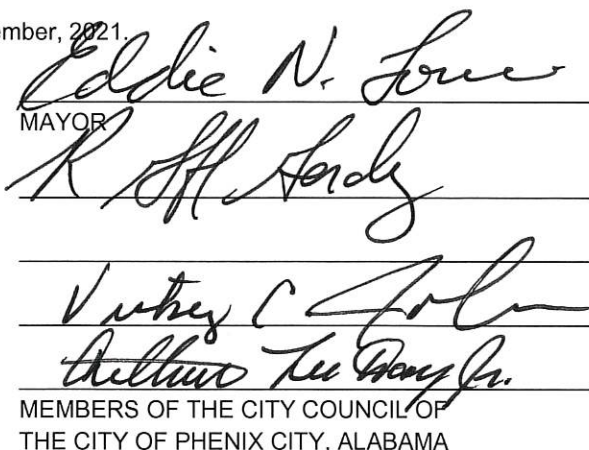 ember, 2021.
Eddie N. Lowe
MAYOR
R Jeff Hardy
Vickey C
Arthur Lee Day Jr.
MEMBERS OF THE CITY COUNCIL OF
THE CITY OF PHENIX CITY, ALABAMA